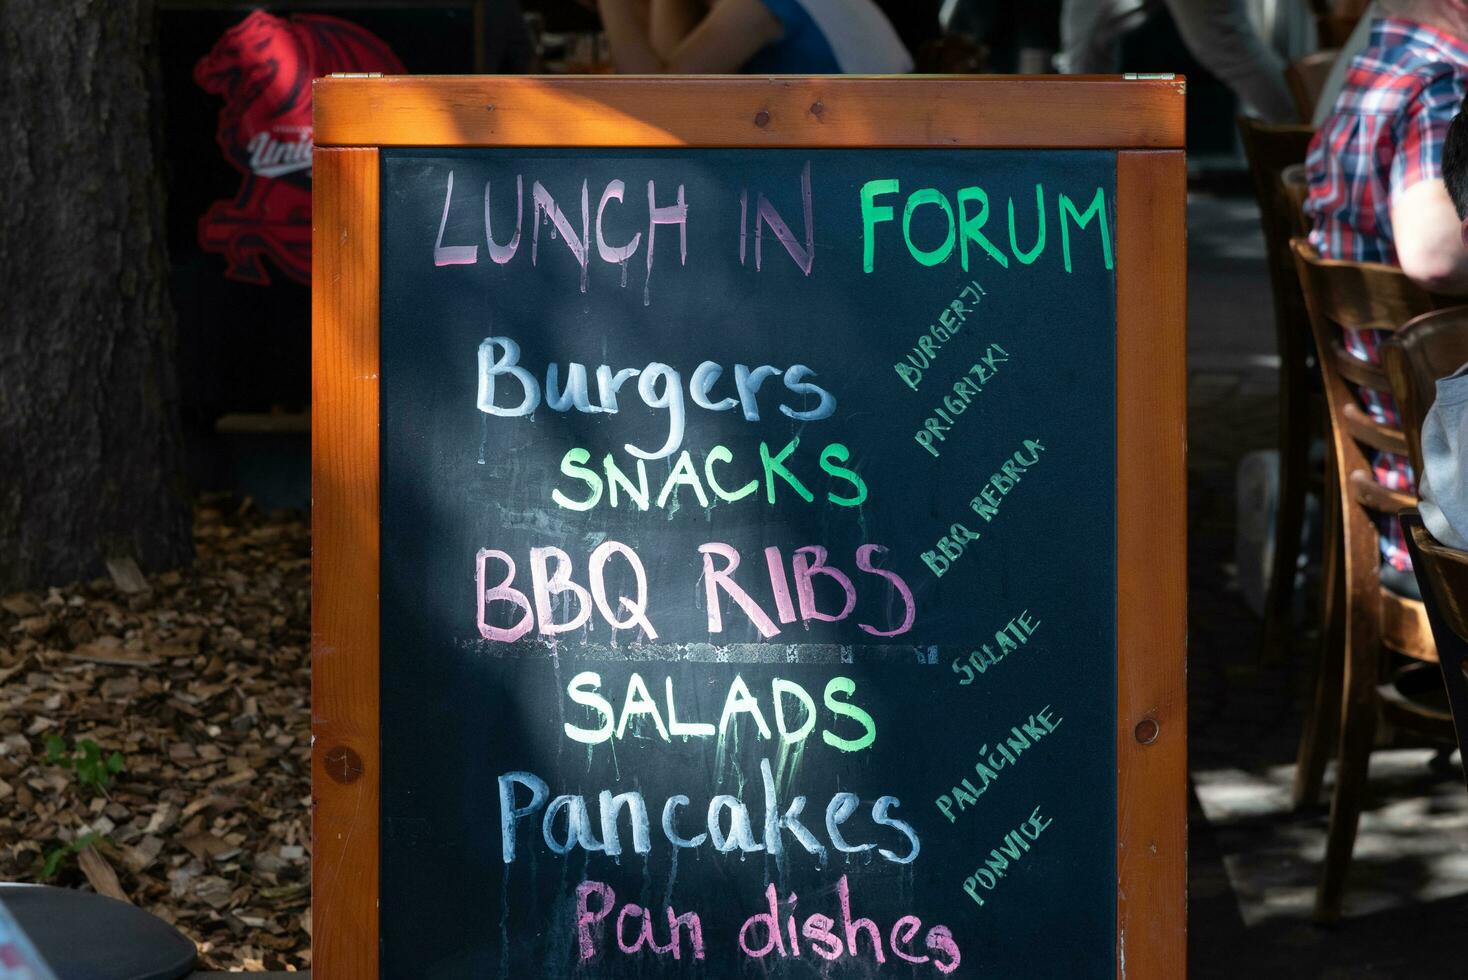 LUNCH IN FORUM
Burgers
BURGERJI
SNACKS
PRIGRIZKI
BBQ RIBS
BBQ REBRCA
SALADS
SOLATE
Pancakes
PALAČINKE
Pan dishes
PONVICE